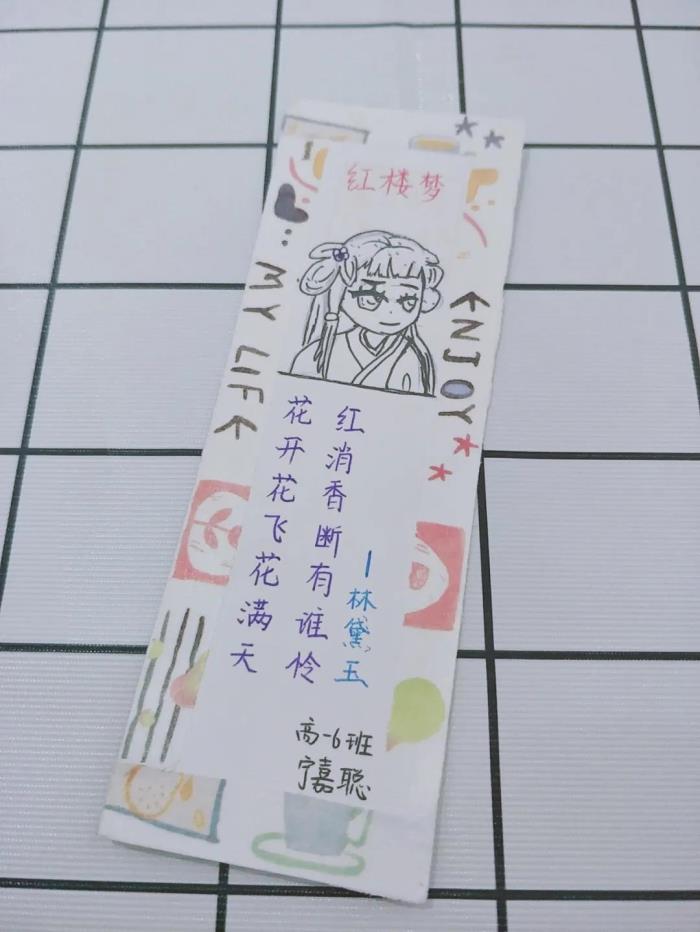 红楼梦
MY LIFE
ENJOY
花开花飞花满天
红消香断有谁怜
—林黛玉
高一6班
宁嘉聪